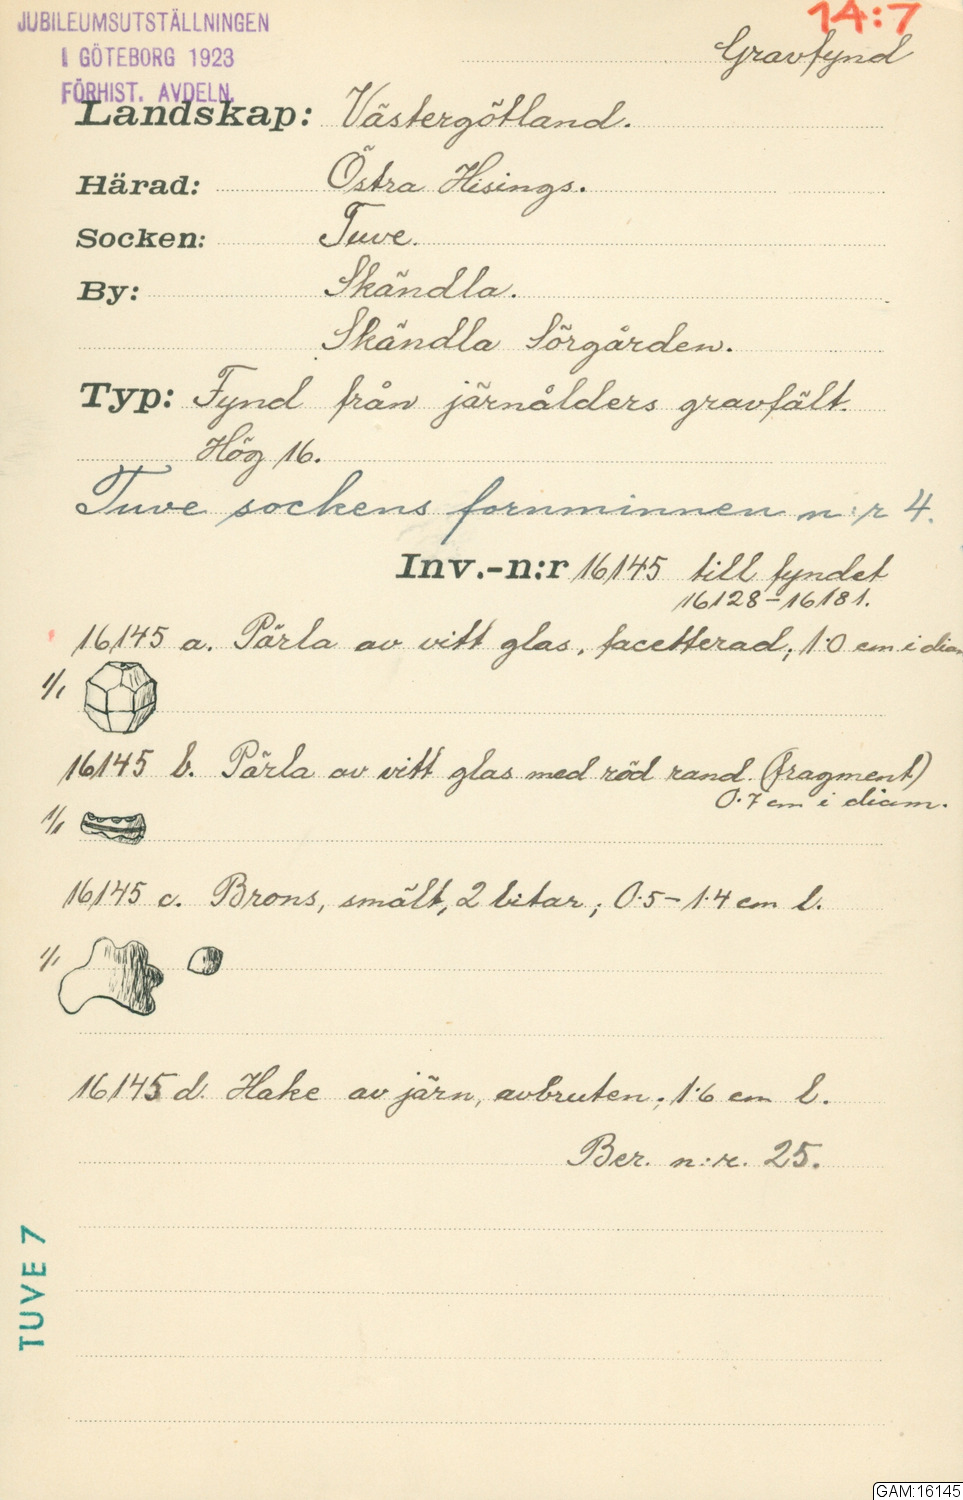 JUBILEUMSUTSTÄLLNINGEN
I GÖTEBORG 1923
FÖRHIST. AVDELN.
14:7
Gravfynd
Landskap: Västergötland.
Härad: Östra Hisings.
Socken: Tuve.
By: Skändla.
Skändla Sörgården.
Typ: Fynd från järnålders gravfält.
Hög 16.
Tuve sockens fornminnen n:r 4.
Inv.-n:r 16145 till fyndet
16128-16181.
16145 a. Pärla av vitt glas, facetterad; 1.0 cm i diam
1/1
16145 b. Pärla av vitt glas med röd rand (fragment)
0.7 cm i diam.
1/1
16145 c. Brons, smält, 2 bitar; 0.5-1.4 cm l.
1/1
16145 d. Hake av järn, avbruten; 1.6 cm l.
Ber. n:r. 25.
TUVE 7
GAM:16145